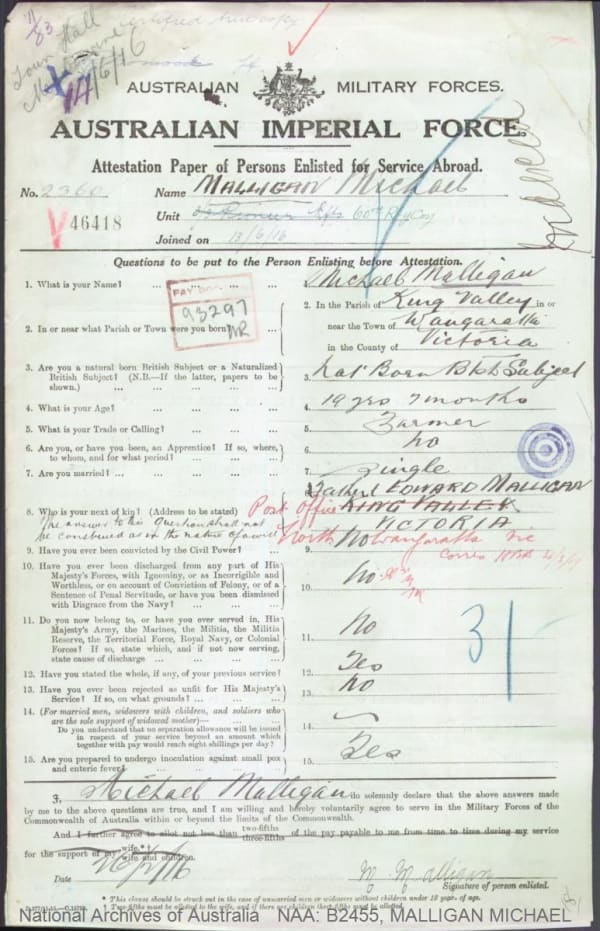 Town Hall
14/6/16
AUSTRALIAN MILITARY FORCES.
AUSTRALIAN IMPERIAL FORCE.
Attestation Paper of Persons Enlisted for Service Abroad.
No. 2360 Name MALLIGAN Michael
46418 Unit
Joined on 13/6/16
Questions to be put to the Person Enlisting before Attestation.
1. What is your Name? ... Michael Malligan
PAY
93297
2. In or near what Parish or Town were you born? 2. In the Parish of King Valley in or
near the Town of Wangaratta
in the County of Victoria
3. Are you a natural born British Subject or a Naturalized
British Subject? (N.B.—If the latter, papers to be
shown.) ... 3. Nat Born Subject
4. What is your Age? ... 4. 19 yrs 7 months
5. What is your Trade or Calling? ... 5. Farmer
6. Are you, or have you been, an Apprentice? If so, where,
to whom, and for what period? ... 6. No
7. Are you married? ... 7. Single
8. Who is your next of kin? (Address to be stated) 8. Father EDWARD MALLIGAN
Post Office KING VALLEY
VICTORIA
The answer to this question shall not
be construed as in the nature of a will
North Wangaratta Vic
9. Have you ever been convicted by the Civil Power? ... 9. No
10. Have you ever been discharged from any part of His
Majesty's Forces, with Ignominy, or as Incorrigible and
Worthless, or on account of Conviction of Felony, or of a
Sentence of Penal Servitude, or have you been dismissed
with Disgrace from the Navy? ... 10. No
11. Do you now belong to, or have you ever served in, His
Majesty's Army, the Marines, the Militia, the Militia
Reserve, the Territorial Force, Royal Navy, or Colonial
Forces? If so, state which, and if not now serving,
state cause of discharge ... 11. No
12. Have you stated the whole, if any, of your previous service? 12. Yes
13. Have you ever been rejected as unfit for His Majesty's
Service? If so, on what grounds? ... 13. No
14. (For married men, widowers with children, and soldiers who
are the sole support of widowed mother)—
Do you understand that no separation allowance will be issued
in respect of your service beyond an amount which
together with pay would reach eight shillings per day? 14.
15. Are you prepared to undergo inoculation against small pox
and enteric fever? ... 15. Yes
I, Michael Malligan do solemnly declare that the above answers made
by me to the above questions are true, and I am willing and hereby voluntarily agree to serve in the Military Forces of the
Commonwealth of Australia within or beyond the limits of the Commonwealth.
And I further agree to allot not less than two-fifths three-fifths of the pay payable to me from time to time during my service
for the support of my wife.* wife and children.
Date
M Malligan
Signature of person enlisted.
* This clause should be struck out in the case of unmarried men or widowers without children under 18 years of age.
† Two-fifths must be allotted to the wife, and if there are children three-fifths must be allotted.
National Archives of Australia NAA: B2455, MALLIGAN MICHAEL